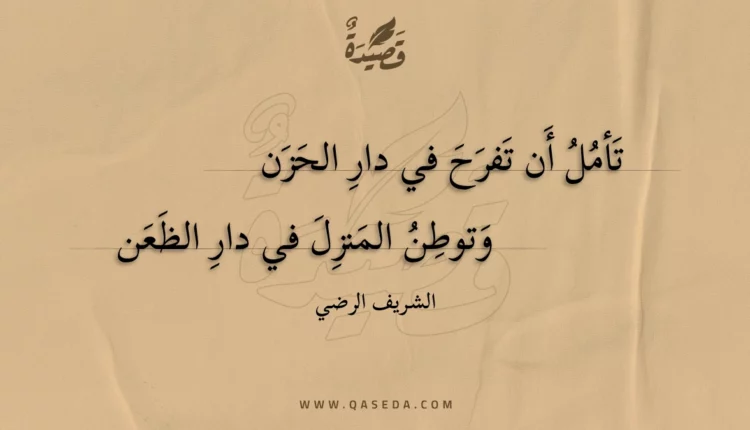 قَصِيدَةٌ
تَأمُلُ أَن تَفرَحَ في دارِ الحَزَن
وَتوطِنُ المَنزِلَ في دارِ الظَعَن
الشريف الرضي
WWW.QASEDA.COM